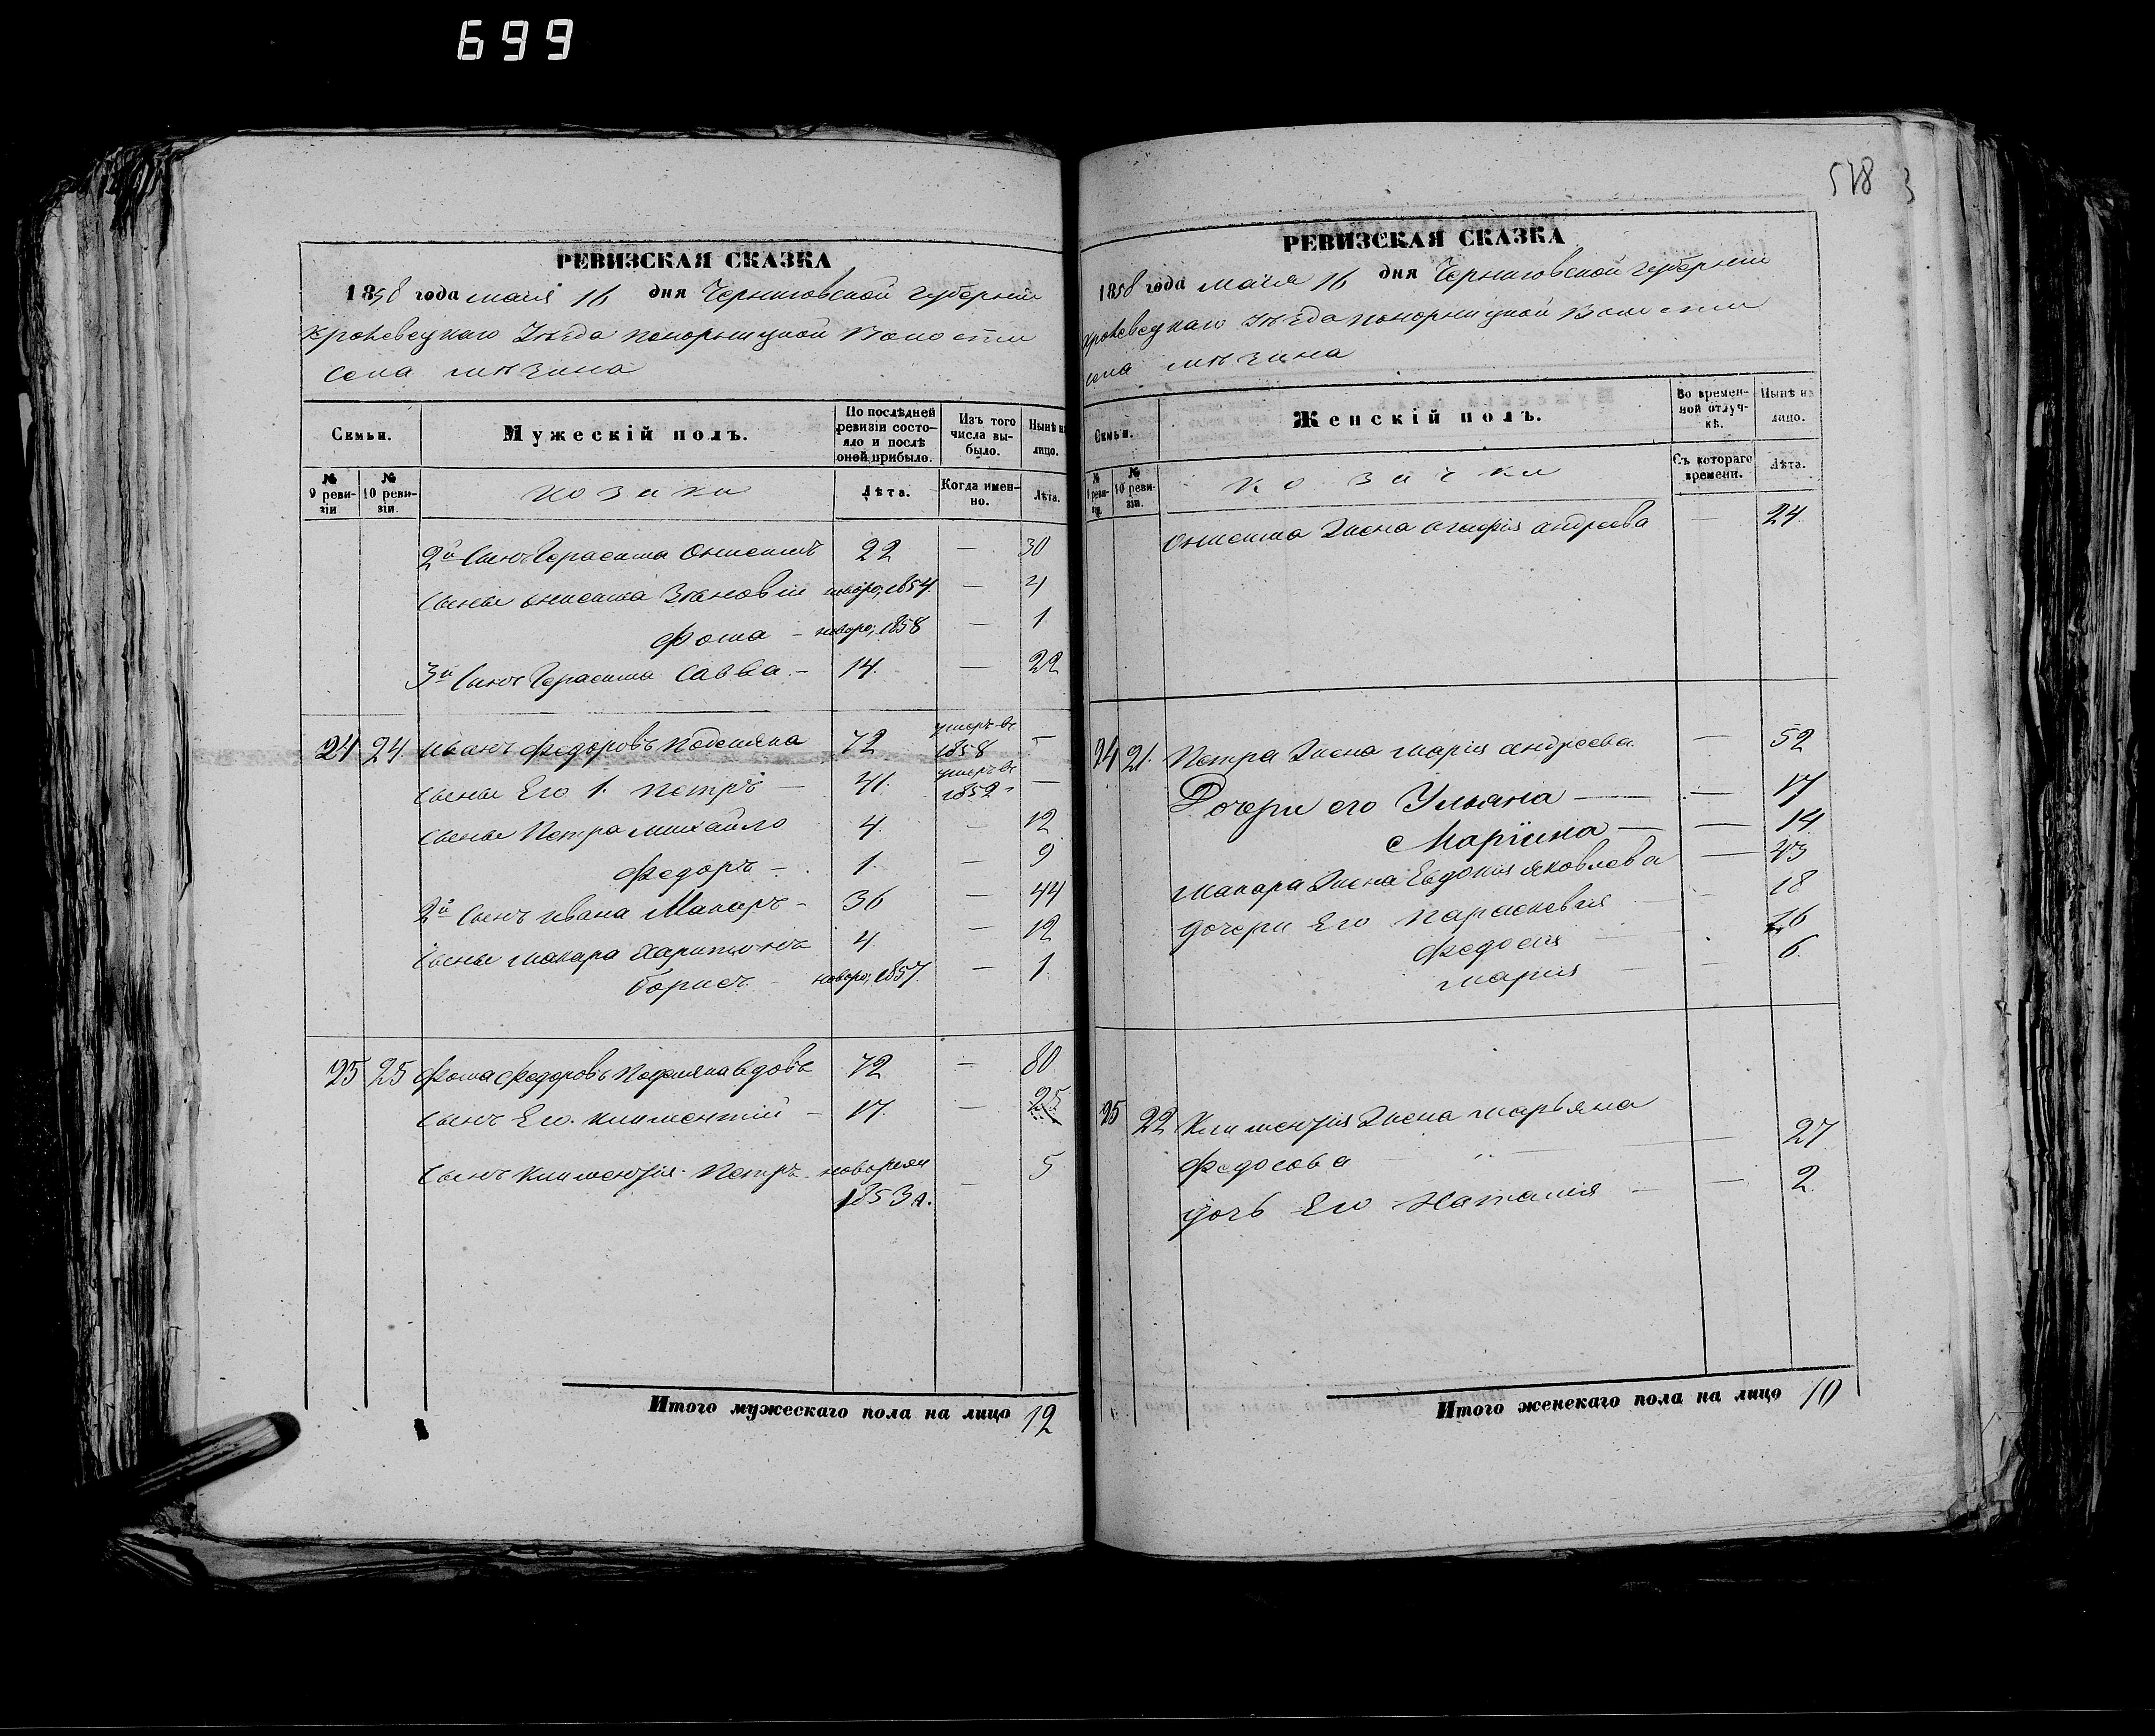 699
РЕВИЗСКАЯ СКАЗКА
1858 года мая 16 дня Черниговской губерніи
Кролевецкаго уѣзда Понорницкой Волости
Села Мѣзина
Семьи.
Мужескій полъ.
По послѣдней ревизіи состояло и послѣ оной прибыло.
Изъ того числа выбыло.
Нынѣ на лицо.
№ 9 ревизіи
№ 10 ревизіи.
козаки
Лѣта.
Когда именно.
Лѣта.
2й Сынъ Герасима Онисимъ 22 — 30
Сыны Онисима Зѣновій новоро; 1854. — 4
Фома – новоро; 1858 — 1
3й Сынъ Герасима Савва – 14. — 22
24 24. Иванъ Федоровъ 72 умеръ въ 1858 —
Сыны Его 1. Петръ — 41. умеръ въ 1852 —
Сыны Петра Михайло 4. — 12
Федоръ — 1. — 9
2й Сынъ Ивана Макаръ – 36 — 44
Сыны Макара Харитонъ 4 — 12
Борисъ новоро; 1857. — 1.
25 25 Фома Федоровъ вдовъ 72 — 80
Сынъ Его Климентій — 17. — 25
Сынъ Климентія Петръ новорож 1853 — 5
Итого мужескаго пола на лицо 12
528 3
РЕВИЗСКАЯ СКАЗКА
1858 года мая 16 дня Черниговской губерніи
Кролевецкаго уѣзда Понорницкой Волости
Села Мѣзина
Семьи.
Женскій полъ.
Во временной отлучкѣ.
Нынѣ на лицо.
№ 9 ревизіи.
№ 10 ревизіи.
козачки
Съ котораго времени.
Лѣта.
Онисима Жена Агафія Андреева — 24.
24 21. Петра Жена Марія Андреева — 52
Дочери его Ульяна — — 17
Марина — — 14
Макара Жена Евдокія Яковлева — 43
дочери Его Параскевія — 18
Федосія — 16
Марія — 6.
25 22 Климентія Жена Марьяна
Федосова — — 27
дочь Его Наталія — — 2.
Итого женскаго пола на лицо 10